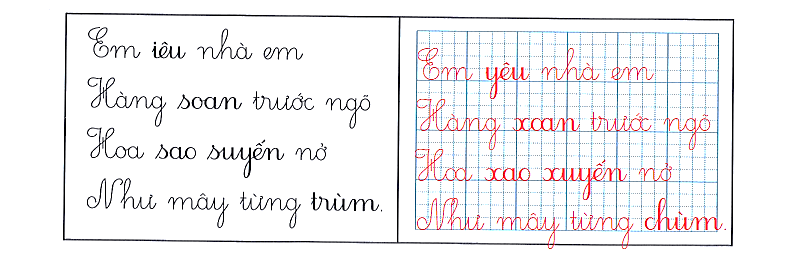 Em iêu nhà em
Hàng soan trước ngõ
Hoa sao suyến nở
Như mây từng trùm.
Em yêu nhà em
Hàng xoan trước ngõ
Hoa xao xuyến nở
Như mây từng chùm.